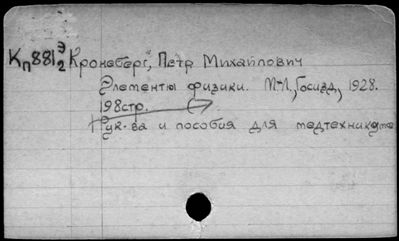 Кп881 Э2 Кронеберг, Петр Михайлович
Элементы физики. М-Л., Госизд., 1928.
198стр.
Рук-ва и пособия для медтехникумо